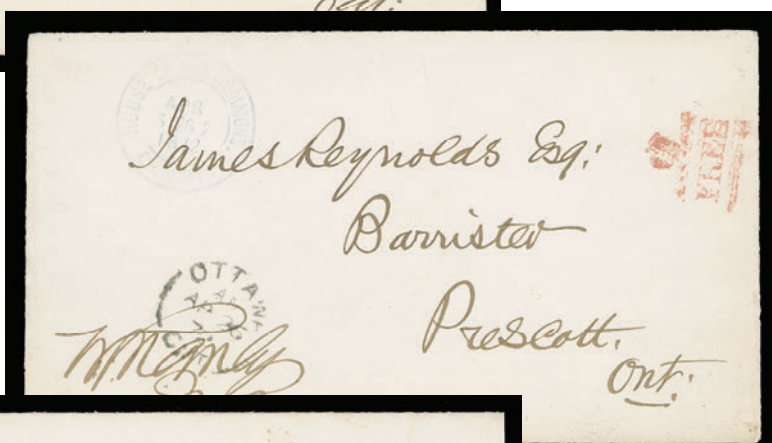 HOUSE
James Reynolds Esq:
FREE
Barrister
OTTAWA
Prescott.
Ont.